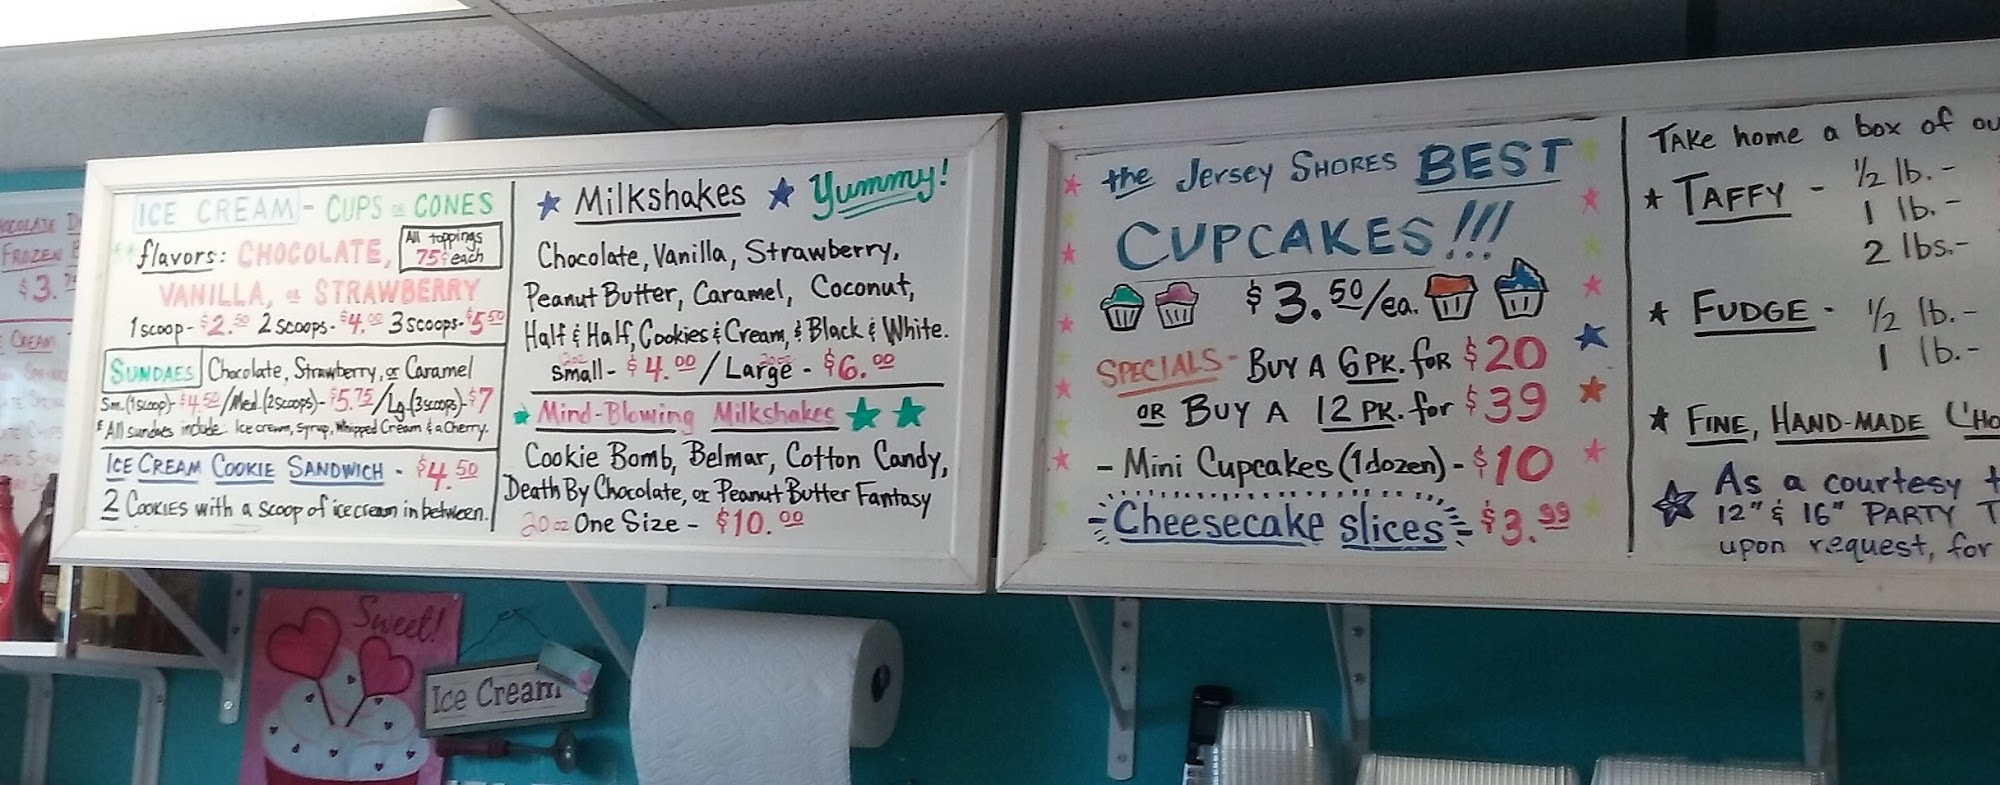 ICE CREAM - CUPS or CONES
flavors: CHOCOLATE,
All toppings
75¢ each
VANILLA, or STRAWBERRY
1 scoop - $2.50 2 scoops - $4.00 3 scoops - $5.50
SUNDAES Chocolate, Strawberry, or Caramel
Sm. (1 scoop) - $4.50 / Med. (2 scoops) - $5.75 / Lg. (3 scoops) - $7
* All sundaes include: Ice cream, syrup, Whipped Cream & a Cherry.
ICE CREAM COOKIE SANDWICH - $4.50
2 COOKIES with a scoop of ice cream in between.
Milkshakes Yummy!
Chocolate, Vanilla, Strawberry,
Peanut Butter, Caramel, Coconut,
Half & Half, Cookies & Cream, & Black & White.
Small - $4.00 / Large - $6.00
Mind-Blowing Milkshakes
Cookie Bomb, Belmar, Cotton Candy,
Death By Chocolate, or Peanut Butter Fantasy
20 oz One Size - $10.00
the Jersey SHORES BEST
CUPCAKES!!!
$3.50/ea.
SPECIALS - BUY A 6 PK. for $20
OR BUY A 12 PK. for $39
- Mini Cupcakes (1 dozen) - $10
Cheesecake slices $3.99
TAKE home a box of
TAFFY - 1/2 lb. -
1 lb. -
2 lbs. -
FUDGE - 1/2 lb. -
1 lb. -
FINE, HAND-MADE
As a courtesy
12" & 16" PARTY
upon request, for
FROZEN
$3.
CREAM
Sweet!
Ice Cream